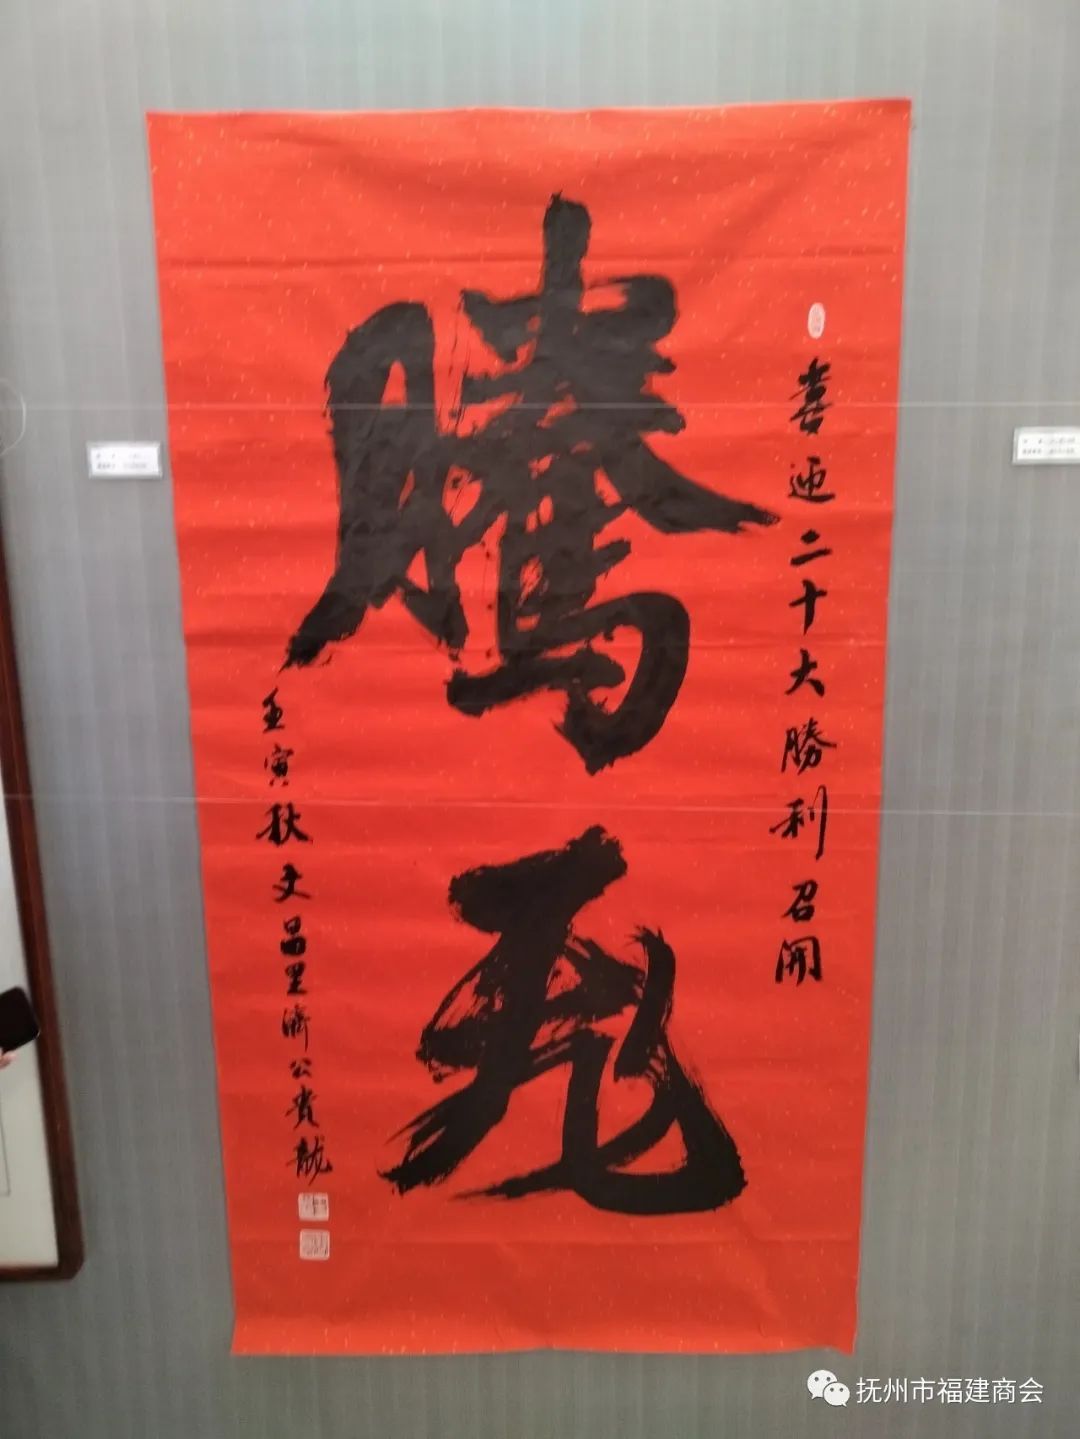 喜迎二十大勝利召開
騰飛
壬寅秋文昌里濟公貴龍
抚州市福建商会